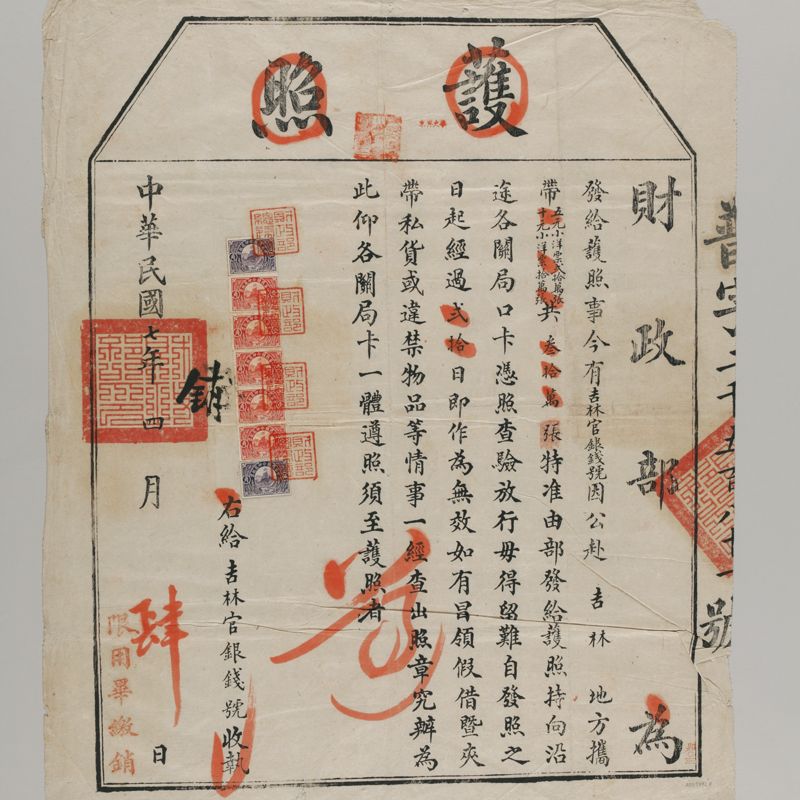 護照
財政部為
發給護照事今有吉林官銀錢號因公赴吉林地方攜
帶五元小洋票弍拾萬張十元小洋票拾萬張共叁拾萬張特准由部發給護照持向沿
途各關局口卡憑照查驗放行毋得留難自發照之
日起經過弍拾日即作為無效如有冒領假借暨夾
帶私貨或違禁物品等情事一經查出照章究辦為
此仰各關局卡一體遵照須至護照者
財政部
財政部
財政部
財政部
右給吉林官銀錢號收執
中華民國七年四月肆日
限用畢繳銷